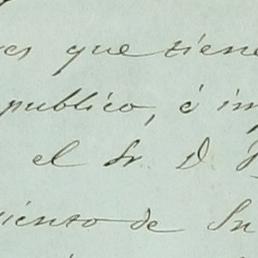 que tiene
publico, é im
el Sr. D.
iento de Su